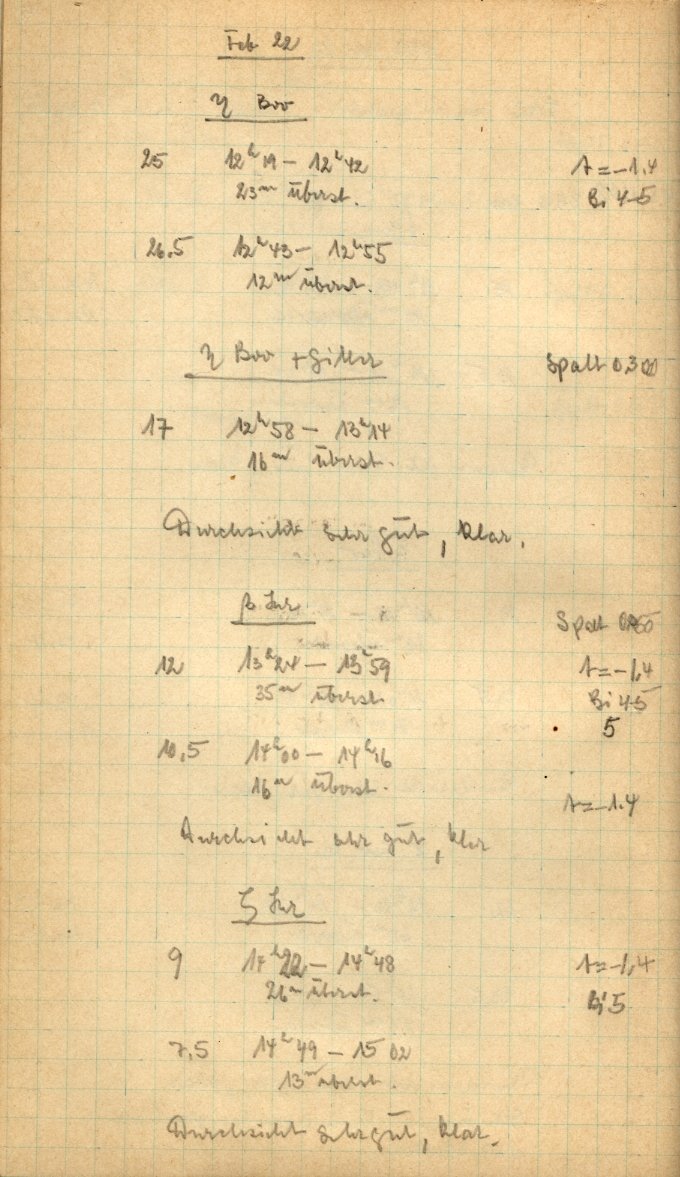 Feb 22
η Boo
25 12ʰ19 – 12ʰ42 t = –1,4
23ᵐ überst. Bi 4-5
26.5 12ʰ43 – 12ʰ55
12ᵐ überst.
η Boo + Gitter Spalt 0.300
17 12ʰ58 – 13ʰ14
16ᵐ überst.
Durchsicht sehr gut, klar.
β Spalt
12 13ʰ24 – 13ʰ59 t = –1,4
35ᵐ überst. Bi 4-5
5
10,5 14ʰ00 – 14ʰ16
16ᵐ überst.
t = –1.4
Durchsicht sehr gut, klar
ζ
9 14ʰ22 – 14ʰ48 t = –1,4
26ᵐ überst. Bi 5
7,5 14ʰ49 – 15 02
13ᵐ überst.
Durchsicht sehr gut, klar.